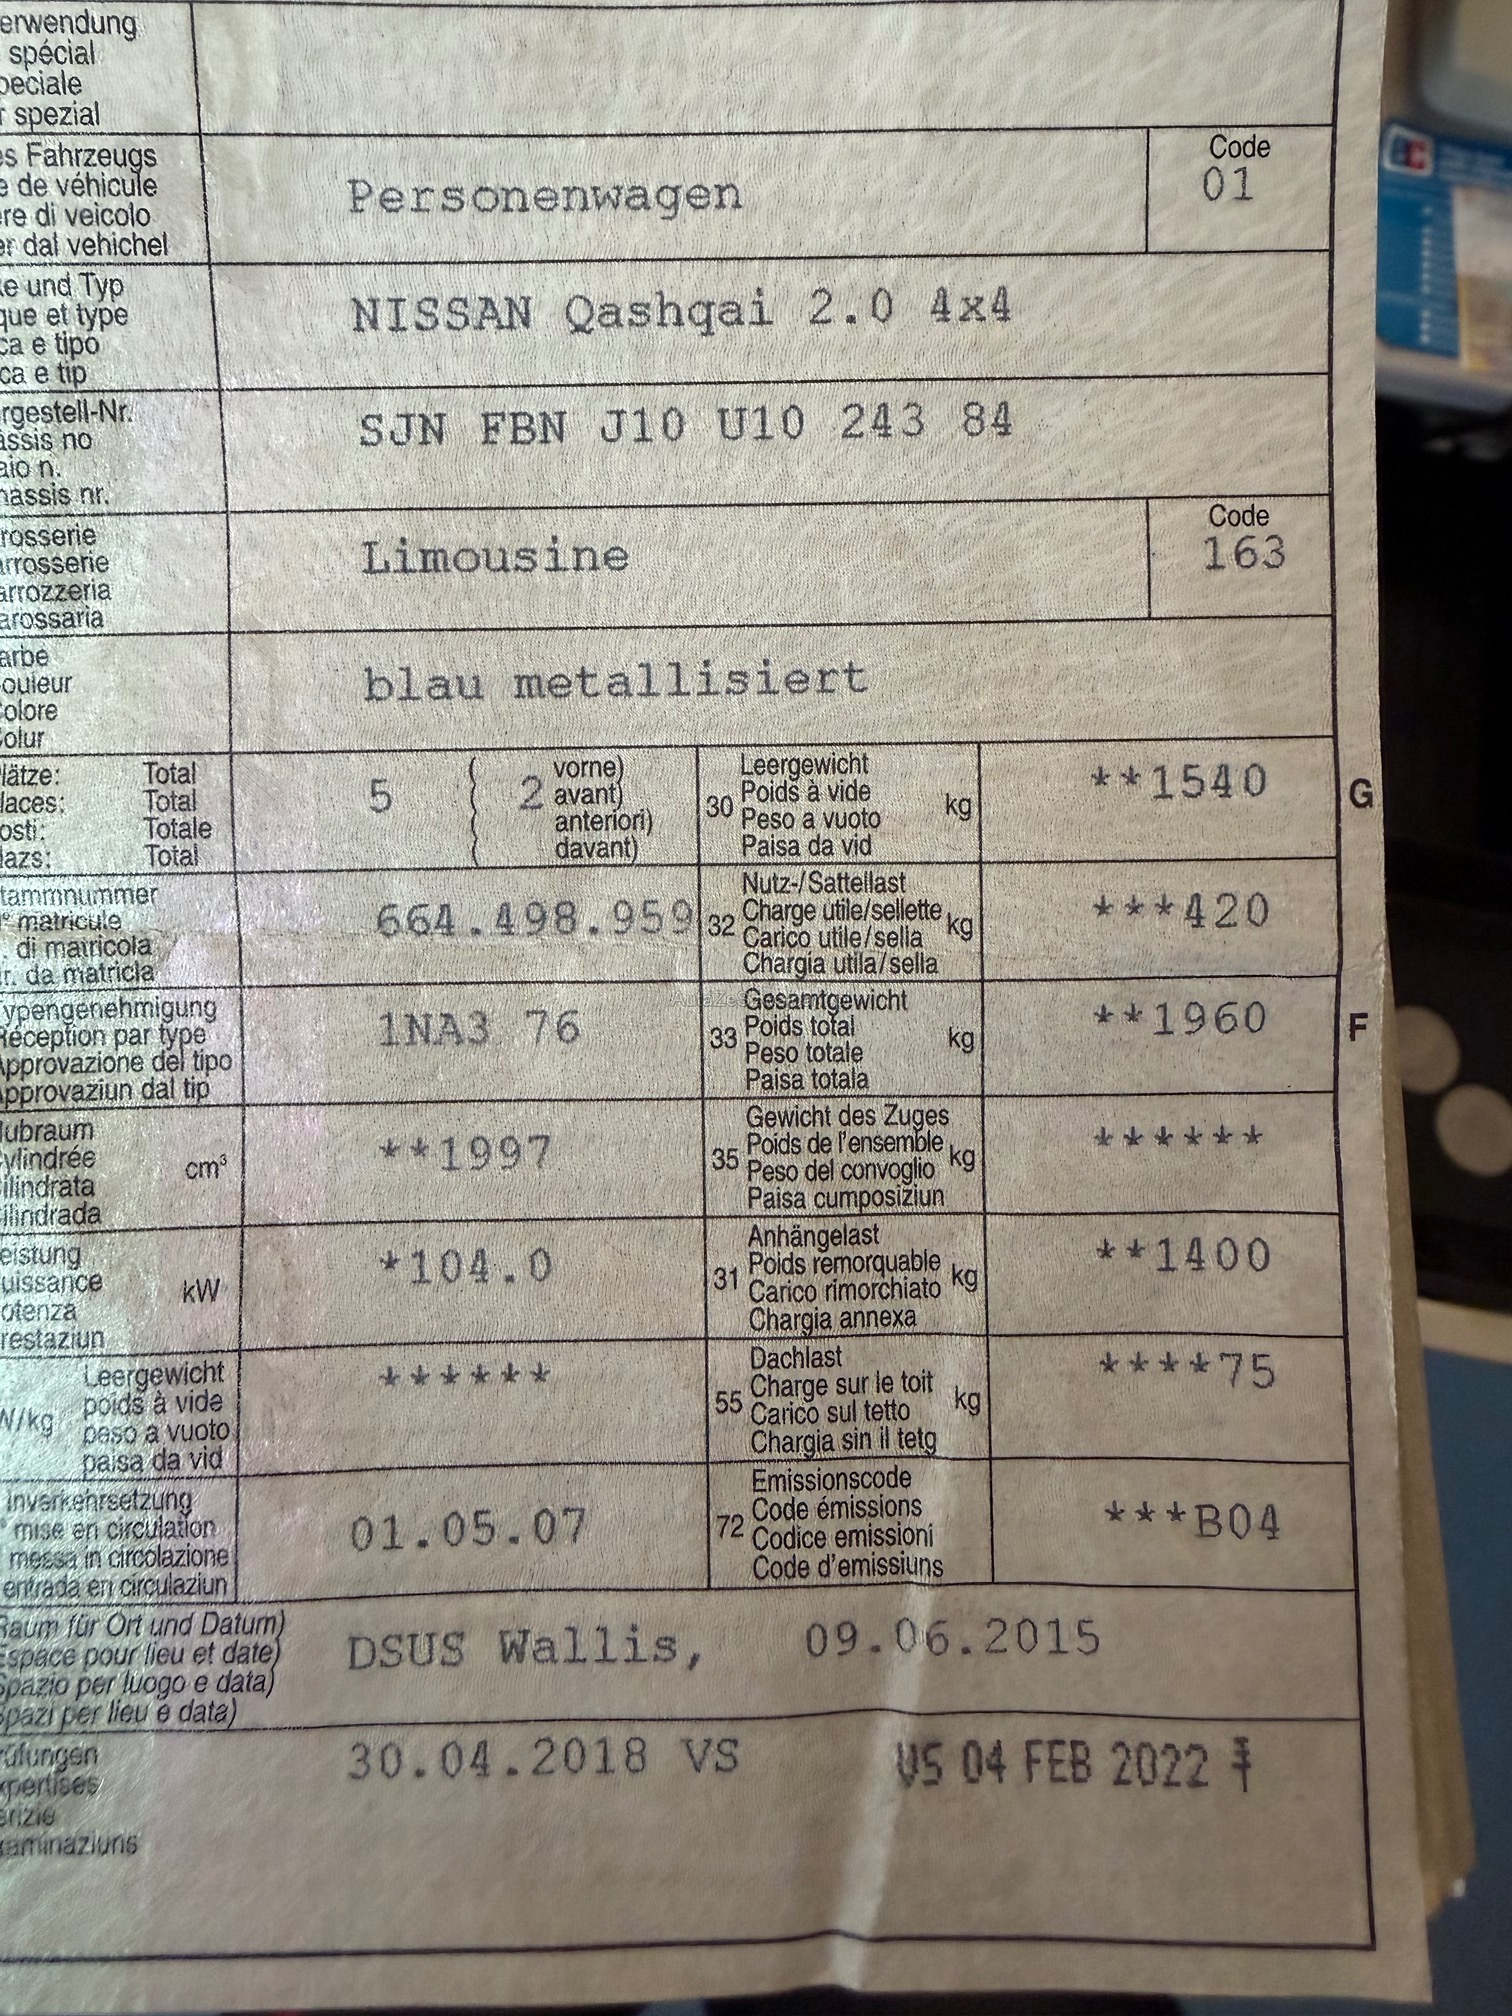 erwendung
spécial
peciale
r spezial
es Fahrzeugs
e de véhicule
ere di veicolo
er dal vehichel
Personenwagen
Code
01
ke und Typ
que et type
ca e tipo
ca e tip
NISSAN Qashqai 2.0 4x4
rgestell-Nr.
assis no
aio n.
hassis nr.
SJN FBN J10 U10 243 84
rosserie
arrosserie
arrozzeria
arossaria
Limousine
Code
163
arbe
ouleur
olore
olur
blau metallisiert
lätze: Total
laces: Total
osti: Totale
lazs: Total
5 ( 2 vorne)
avant)
anteriori)
davant)
30 Leergewicht
Poids à vide
Peso a vuoto
Paisa da vid
kg
**1540
G
tammnummer
° matricule
. di matricola
r. da matricla
664.498.959
32 Nutz-/Sattellast
Charge utile/sellette
Carico utile/sella
Chargia utila/sella
kg
***420
ypengenehmigung
Réception par type
Approvazione del tipo
Approvaziun dal tip
1NA3 76
33 Gesamtgewicht
Poids total
Peso totale
Paisa totala
kg
**1960
F
lubraum
ylindrée
ilindrata
ilindrada
cm³
**1997
35 Gewicht des Zuges
Poids de l'ensemble
Peso del convoglio
Paisa cumposiziun
kg
******
eistung
uissance
otenza
restaziun
kW
*104.0
31 Anhängelast
Poids remorquable
Carico rimorchiato
Chargia annexa
kg
**1400
W/kg
Leergewicht
poids à vide
peso a vuoto
paisa da vid
******
55 Dachlast
Charge sur le toit
Carico sul tetto
Chargia sin il tetg
kg
****75
Inverkehrsetzung
° mise en circulation
messa in circolazione
entrada en circulaziun
01.05.07
72 Emissionscode
Code émissions
Codice emissioni
Code d'emissiuns
***B04
Raum für Ort und Datum)
Espace pour lieu et date)
Spazio per luogo e data)
Spazi per lieu e data)
DSUS Wallis, 09.06.2015
rüfungen
xpertises
erizie
xaminaziuns
30.04.2018 VS
VS 04 FEB 2022